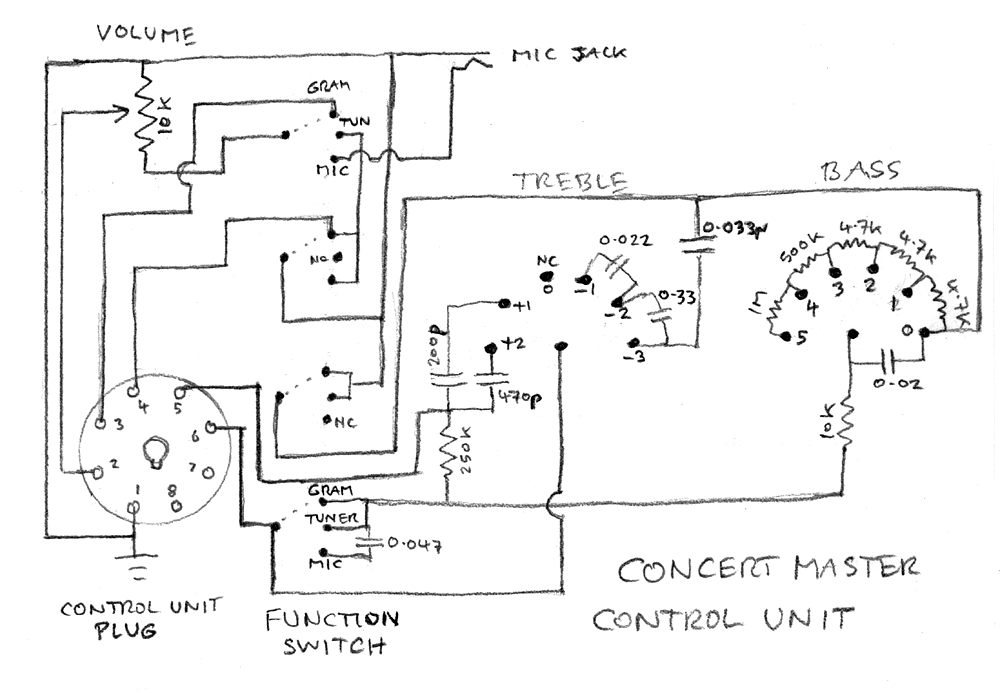 VOLUME
MIC JACK
GRAM
10K
TUN
MIC
TREBLE
BASS
0.033µ
4.7K
4.7K
500K
0.022
NC
NC
0
-1
3
2
1M
4
1
4.7K
+1
-2
0.33
5
0
200p
+2
-3
470p
0.02
4
5
NC
3
6
10K
250K
2
7
1
8
GRAM
TUNER
0.047
MIC
CONCERT MASTER
CONTROL UNIT
CONTROL UNIT
PLUG
FUNCTION
SWITCH